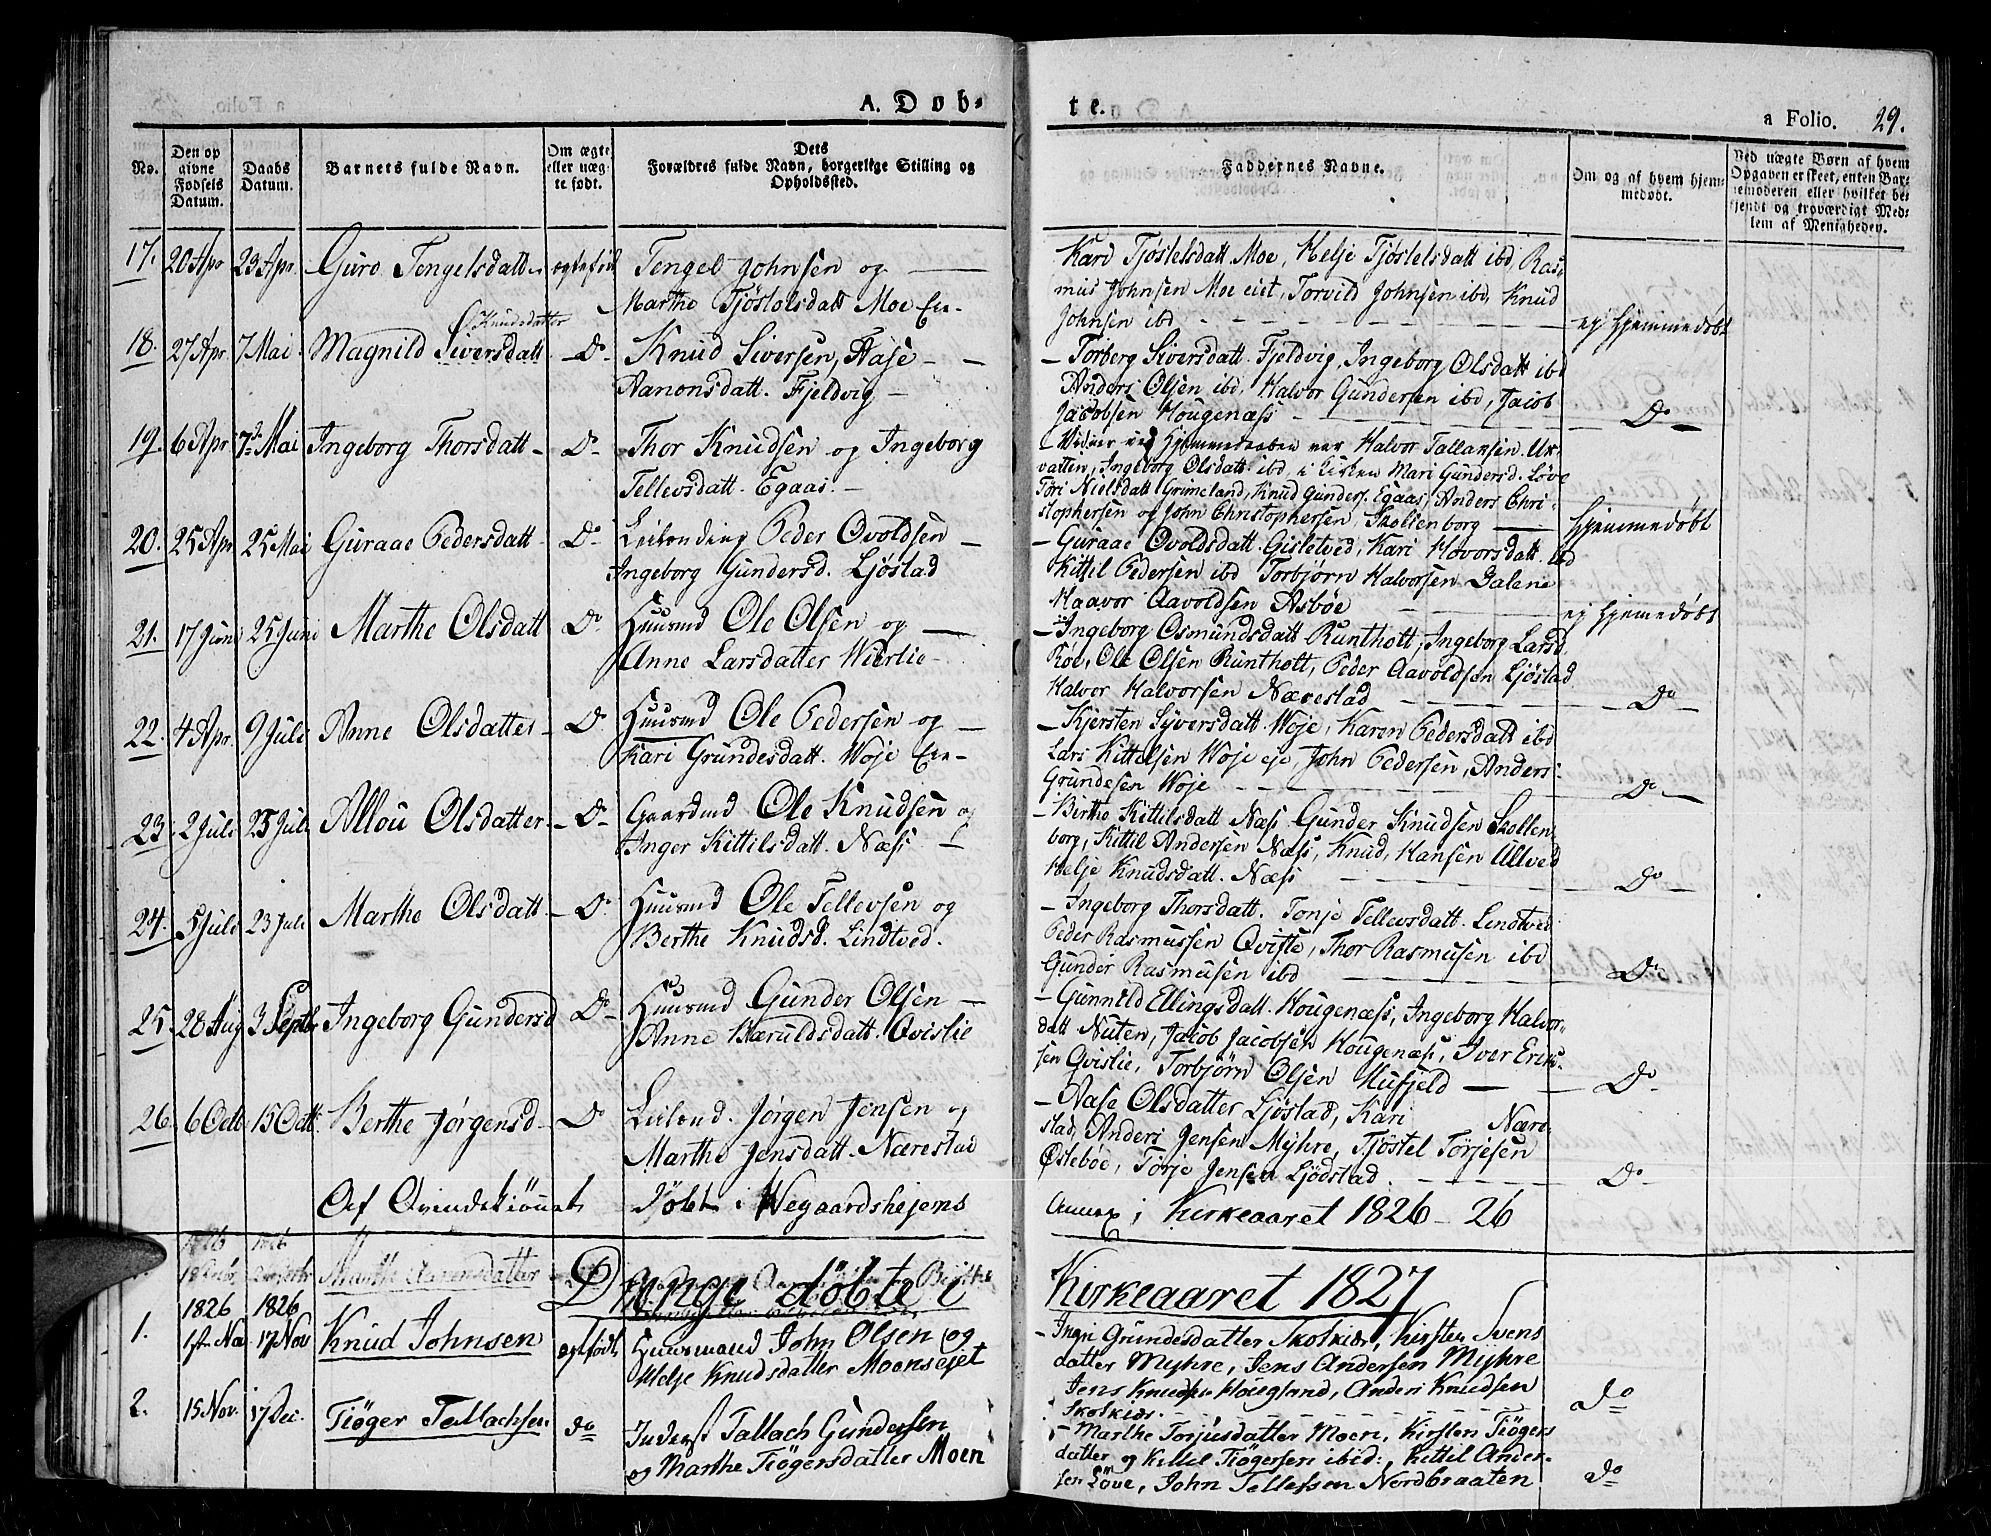 A. Døb-
te.
a Folio. 29.
No.
Den op
givne
Fødsels
Datum.
Daabs
Datum.
Barnets fulde Navn.
Om ægte
eller uæg-
te født.
Dets
Forældres fulde Navn, borgerlige Stilling og
Opholdssted.
Faddernes Navne.
Om og af hvem hjem-
medøbt.
Ved uægte Børn af hvem
Opgaven er skeet, enten Bar-
nemoderen eller hvilket be-
kjendt og troværdigt Med-
lem af Menigheden.
17. 20 Apr 23 Apr. Guro Tengelsdatt. ægtefød Tengel Johnsen og
Marthe Tjøstolsdatt Moe
Kari Tjøstelsdatt. Moe, Helje Tjøstelsdatt ibd, Ras-
mus Johnsen Moe eiet, Torvild Johnsen ibd, Knud
Johnsen ibd ej Hjemmedøbt
18. 27 Apr. 7 Mai. Magnild Siversdatt. Do Knud Siversen, Aase
Knudsdatter
Aanonsdatt. Fjeldvig
Torberg Siversdatt. Fjeldvig, Ingeborg Olsdatt ibd
Anders Olsen ibd, Halvor Gundersen ibd, Jacob
Jacobsen Hougenæss Do
19. 6 Apr 7de Mai Ingeborg Thorsdatt Do Thor Knudsen og Ingeborg
Tellevsdatt. Egaas.
Vidner ved Hjemmedaaben var Halvor Tallaksen. Uk-
vatten, Ingeborg Olsdatt. ibd, i Kirken Mari Gundersd. Løve
Tøri Nielsdatt Grimeland, Knud Gunders. Egaas, Anders Chri-
stophersen og John Christophersen Skollenborg Hjemmedøbt
20. 25 Apr 25 Mai Guraae Pedersdatt Do Leilending Peder Ovoldsen
Ingeborg Gundersd. Ljøstad
Guraae Ovoldsdatt. Gisletved, Kari Hovorsdatt. ibd
Kittil Pedersen ibd Torbjørn Halvorsen Dalene
Haavor Aavoldsen Asbøe ej Hjemmedøbt
21. 17 Juni 25 Juni Marthe Olsdatt Do Huusmd Ole Olsen og
Anne Larsdatter Wierlie
Ingeborg Osmundsdatt Runtholt, Ingeborg Larsd.
Røe, Ole Olsen Runtholt, Peder Aavoldsen Ljøstad
Halvor Halvorsen Nærestad Do
22. 4 Apr. 9 Juli Anne Olsdatter Do Huusmd Ole Pedersen og
Kari Grundesdatt. Woje
Kjersten Syversdatt. Woje, Karen Pedersdatt ibd
Lars Kittelsen Woje eje, John Pedersen, Anders
Grundesen Woje Do
23. 2 Juli 25 Juli Allou Olsdatter Do Gaardmd Ole Knudsen og
Inger Kittilsdatt. Næss
Berthe Kittilsdatt Næss Gunder Knudsen Skollen-
borg, Kittil Andersen Næss, Knud Hansen Ultved
Helje Knudsdatt. Næss Do
24. 5 Juli 23 Juli Marthe Olsdatt Do Huusmd Ole Tellevsen og
Berthe Knudsd. Lindtved.
Ingeborg Thorsdatt. Tonje Tellevsdatt. Lindtved
Peder Rasmussen Qviste, Thor Rasmusen ibd
Gunder Rasmusen ibd Do
25. 28 Aug 3 Septbr Ingeborg Gundersd Do Huusmd Gunder Olsen
Anne Haruldsdatt. Qvislie
Gunnild Ellingsdatt. Hougenæss, Ingeborg Halvor-
datt Nuten, Jacob Jacobsen Hougenæss, Iver Erik-
sen Qvislie, Torbjørn Olsen Mufjeld Do
26. 6 Octb 15 Octb. Berthe Jørgensd Do Leilend. Jørgen Jensen og
Marthe Jensdatt. Nærestad
Aase Olsdatter Ljøstad, Kari Nære-
stad, Anders Jensen Myhre, Tjøstel Tørjesen
Østebøe, Tørje Jensen Ljødstad. Do
Af Qvindekiønnet døbt i Wegaardshejens
Annex i Kirkeaaret 1826 - 26
Drenge døbte i Kirkeaaret 1827
1826 1826
1. 1ste Nov 17 Nov Knud Johnsen ægtefødt Huusmand John Olsen og
Helje Knudsdatter Moensejet
Ingri Grundesdatter Skolkidr, Kirsten Svens
datter Myhre, Jens Andersen Myhre
Jens Knudsen Hougland, Anders Knudsen
Skolkidr. do
2. 15 Nov. 17 Dec. Tiøger Tallachsen do Inderst Tallach Gundersen
og Marthe Tiøgersdatter Moen
Marthe Torjusdatter Moen, Kirsten Tiøgers
datter og Kittel Tiøgersen ibid:, Kittil Ander-
sen Løve, John Tellefsen Nordbraaten do